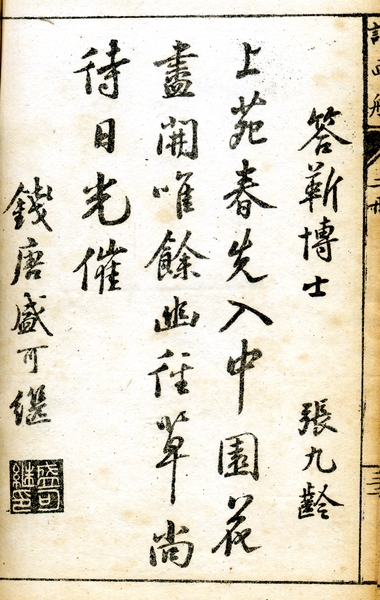 答靳博士 張九齡
上苑春先入中園花
盡開唯餘幽徑草尚
待日光催
錢唐盛可繼
盛可
繼印